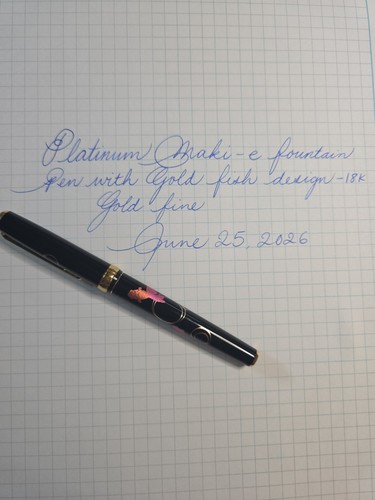 Platinum Maki-e fountain
Pen with Gold fish design -18K
Gold fine
June 25, 2026